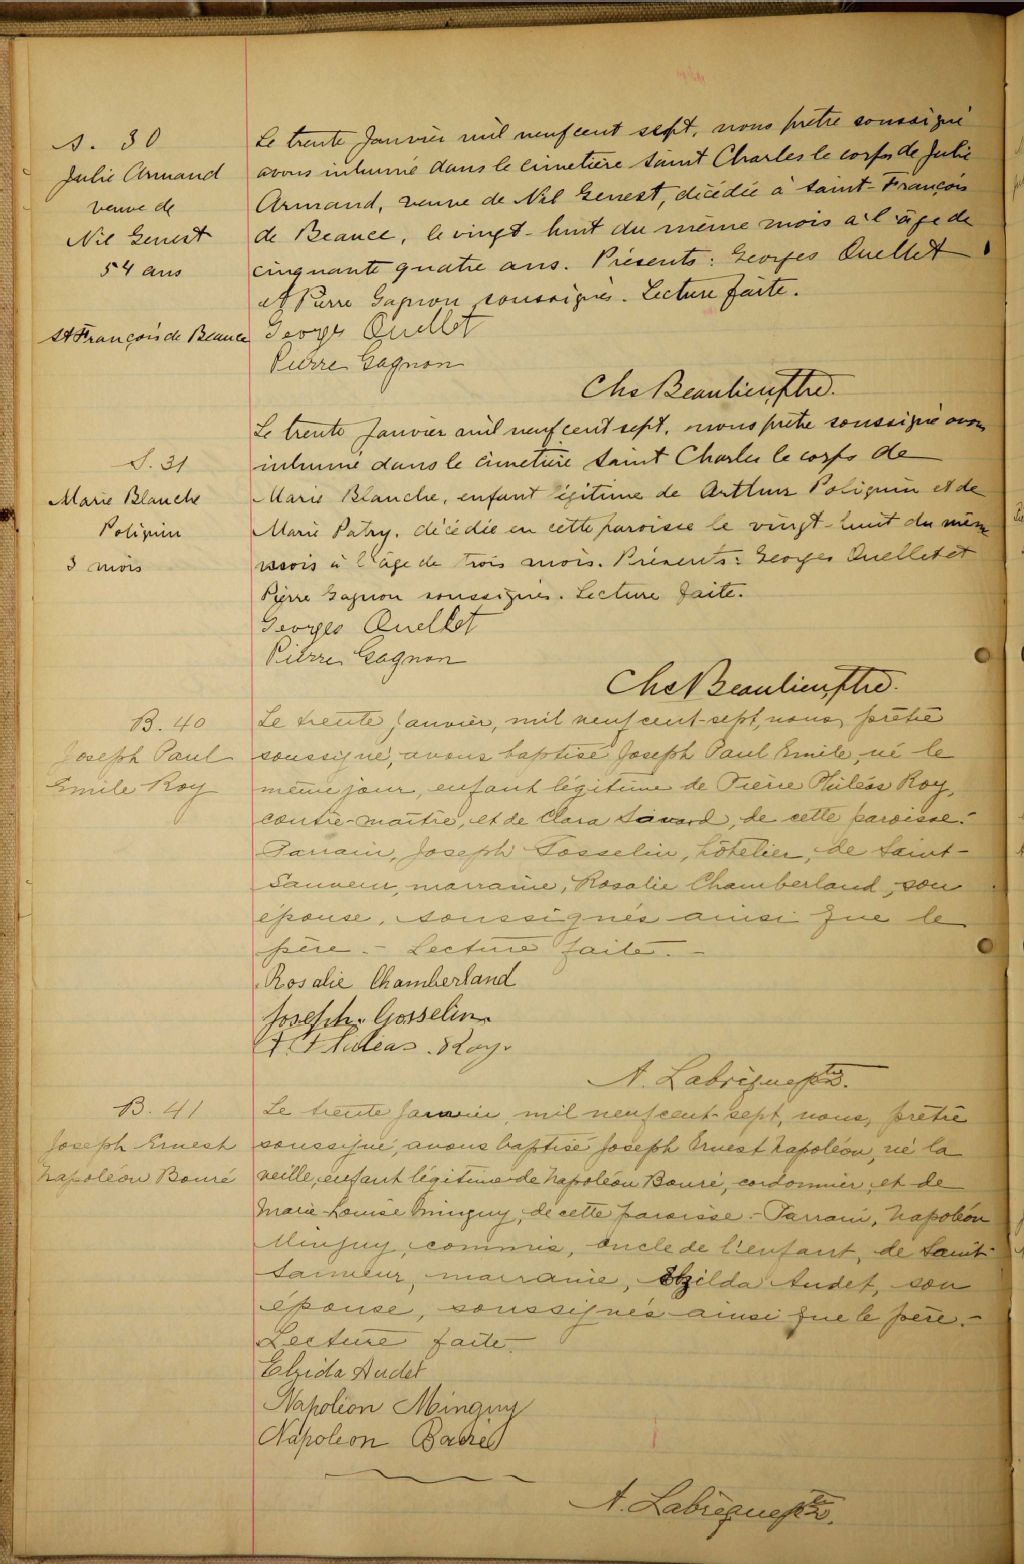 S. 30
Julie Armand
veuve de
Nil Genest
54 ans
St François de Beauce
Le trente Janvier mil neuf cent sept, nous prêtre soussigné
avons inhumé dans le cimetière Saint Charles le corps de Julie
Armand, veuve de Nil Genest, décédée à Saint-François
de Beauce, le vingt-huit du même mois a l'âge de
cinquante quatre ans. Présents: Georges Ouellet
et Pierre Gagnon soussignés. Lecture faite.
Georges Ouellet
Pierre Gagnon
Chs Beaulieu, Ptre.
S. 31
Marie Blanche
Poliquin
3 mois
Le trente Janvier mil neuf cent sept, nous prêtre soussigné avons
inhumé dans le cimetière Saint Charles le corps de
Marie Blanche, enfant légitime de Arthur Poliquin et de
Marie Patry, décédée en cette paroisse le vingt-huit du même
mois à l'âge de trois mois. Présents: Georges Ouellet et
Pierre Gagnon soussignés. Lecture faite.
Georges Ouellet
Pierre Gagnon
Chs Beaulieu, Ptre.
B. 40
Joseph Paul
Emile Roy
Le trente Janvier, mil neuf cent-sept, nous, prêtre
soussigné, avons baptisé Joseph Paul Emile, né le
même jour, enfant légitime de Pierre Philéas Roy,
contre-maître, et de Clara Savard, de cette paroisse.-
Parrain, Joseph Gosselin, hôtelier, de Saint-
Sauveur, marraine, Rosalie Chamberland, son
épouse, soussignés ainsi que le
père. - Lecture faite. -
Rosalie Chamberland
Joseph. Gosselin.
P. Phileas. Roy.
A. Labrèque ptre.
B. 41
Joseph Ernest
Napoléon Bouré
Le trente Janvier, mil neuf cent-sept, nous, prêtre
soussigné, avons baptisé Joseph Ernest Napoléon, né la
veille, enfant légitime de Napoléon Bouré, cordonnier, et de
Marie-Louise Minguy, de cette paroisse.- Parrain, Napoléon
Minguy, commis, oncle de l'enfant, de Saint-
Sauveur, marraine, Elzilda Audet, son
épouse, soussignés ainsi que le père.-
Lecture faite.
Elzida Audet
Napoléon Minguy
Napoleon Bouré
A. Labrèque ptre.